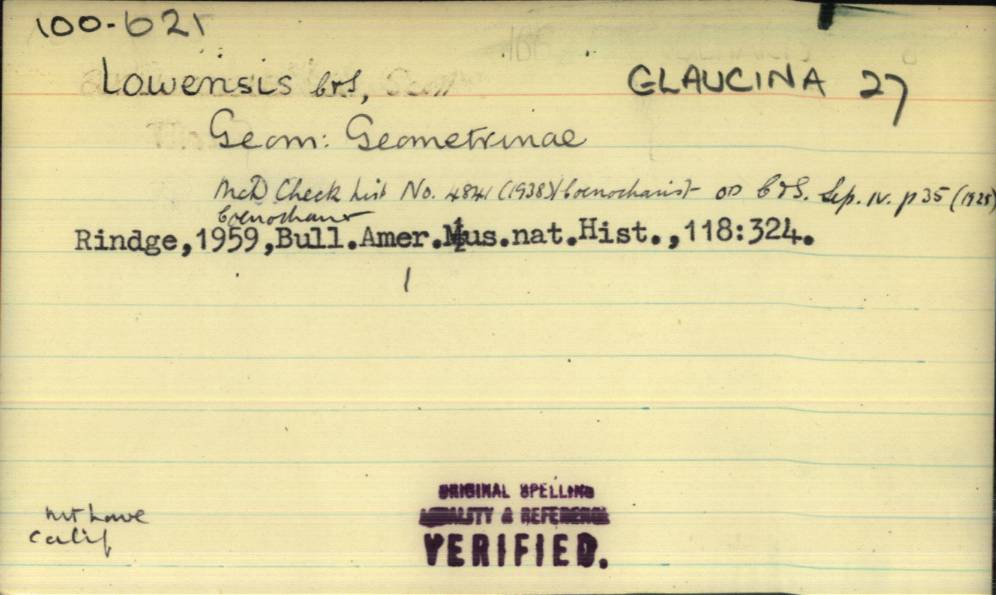 100-621
Lowensis C&S, GLAUCINA 27
Geom: Geometrinae
McD Check List No. 4841 (1938) Coenocharis C&S. Sep. IV. p 35 (1925)
Coenocharis
Rindge,1959,Bull.Amer.Mus.nat.Hist.,118:324.
Mt Lowe
Calif
ORIGINAL SPELLING
LOCALITY & REFERENCE
VERIFIED.